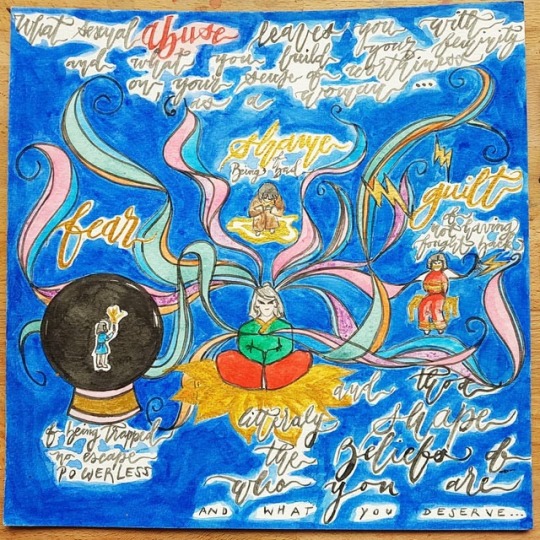 What sexual abuse leaves you with
and what you build your feminity
on your sense of worthiness
as a woman ...
shame
of
Being bad.
fear
guilt
of
not having
fought back
of being trapped
no escape
POWERLESS
and thos
litteraly shape
the Beliefs of
who you are
AND WHAT YOU DESERVE...